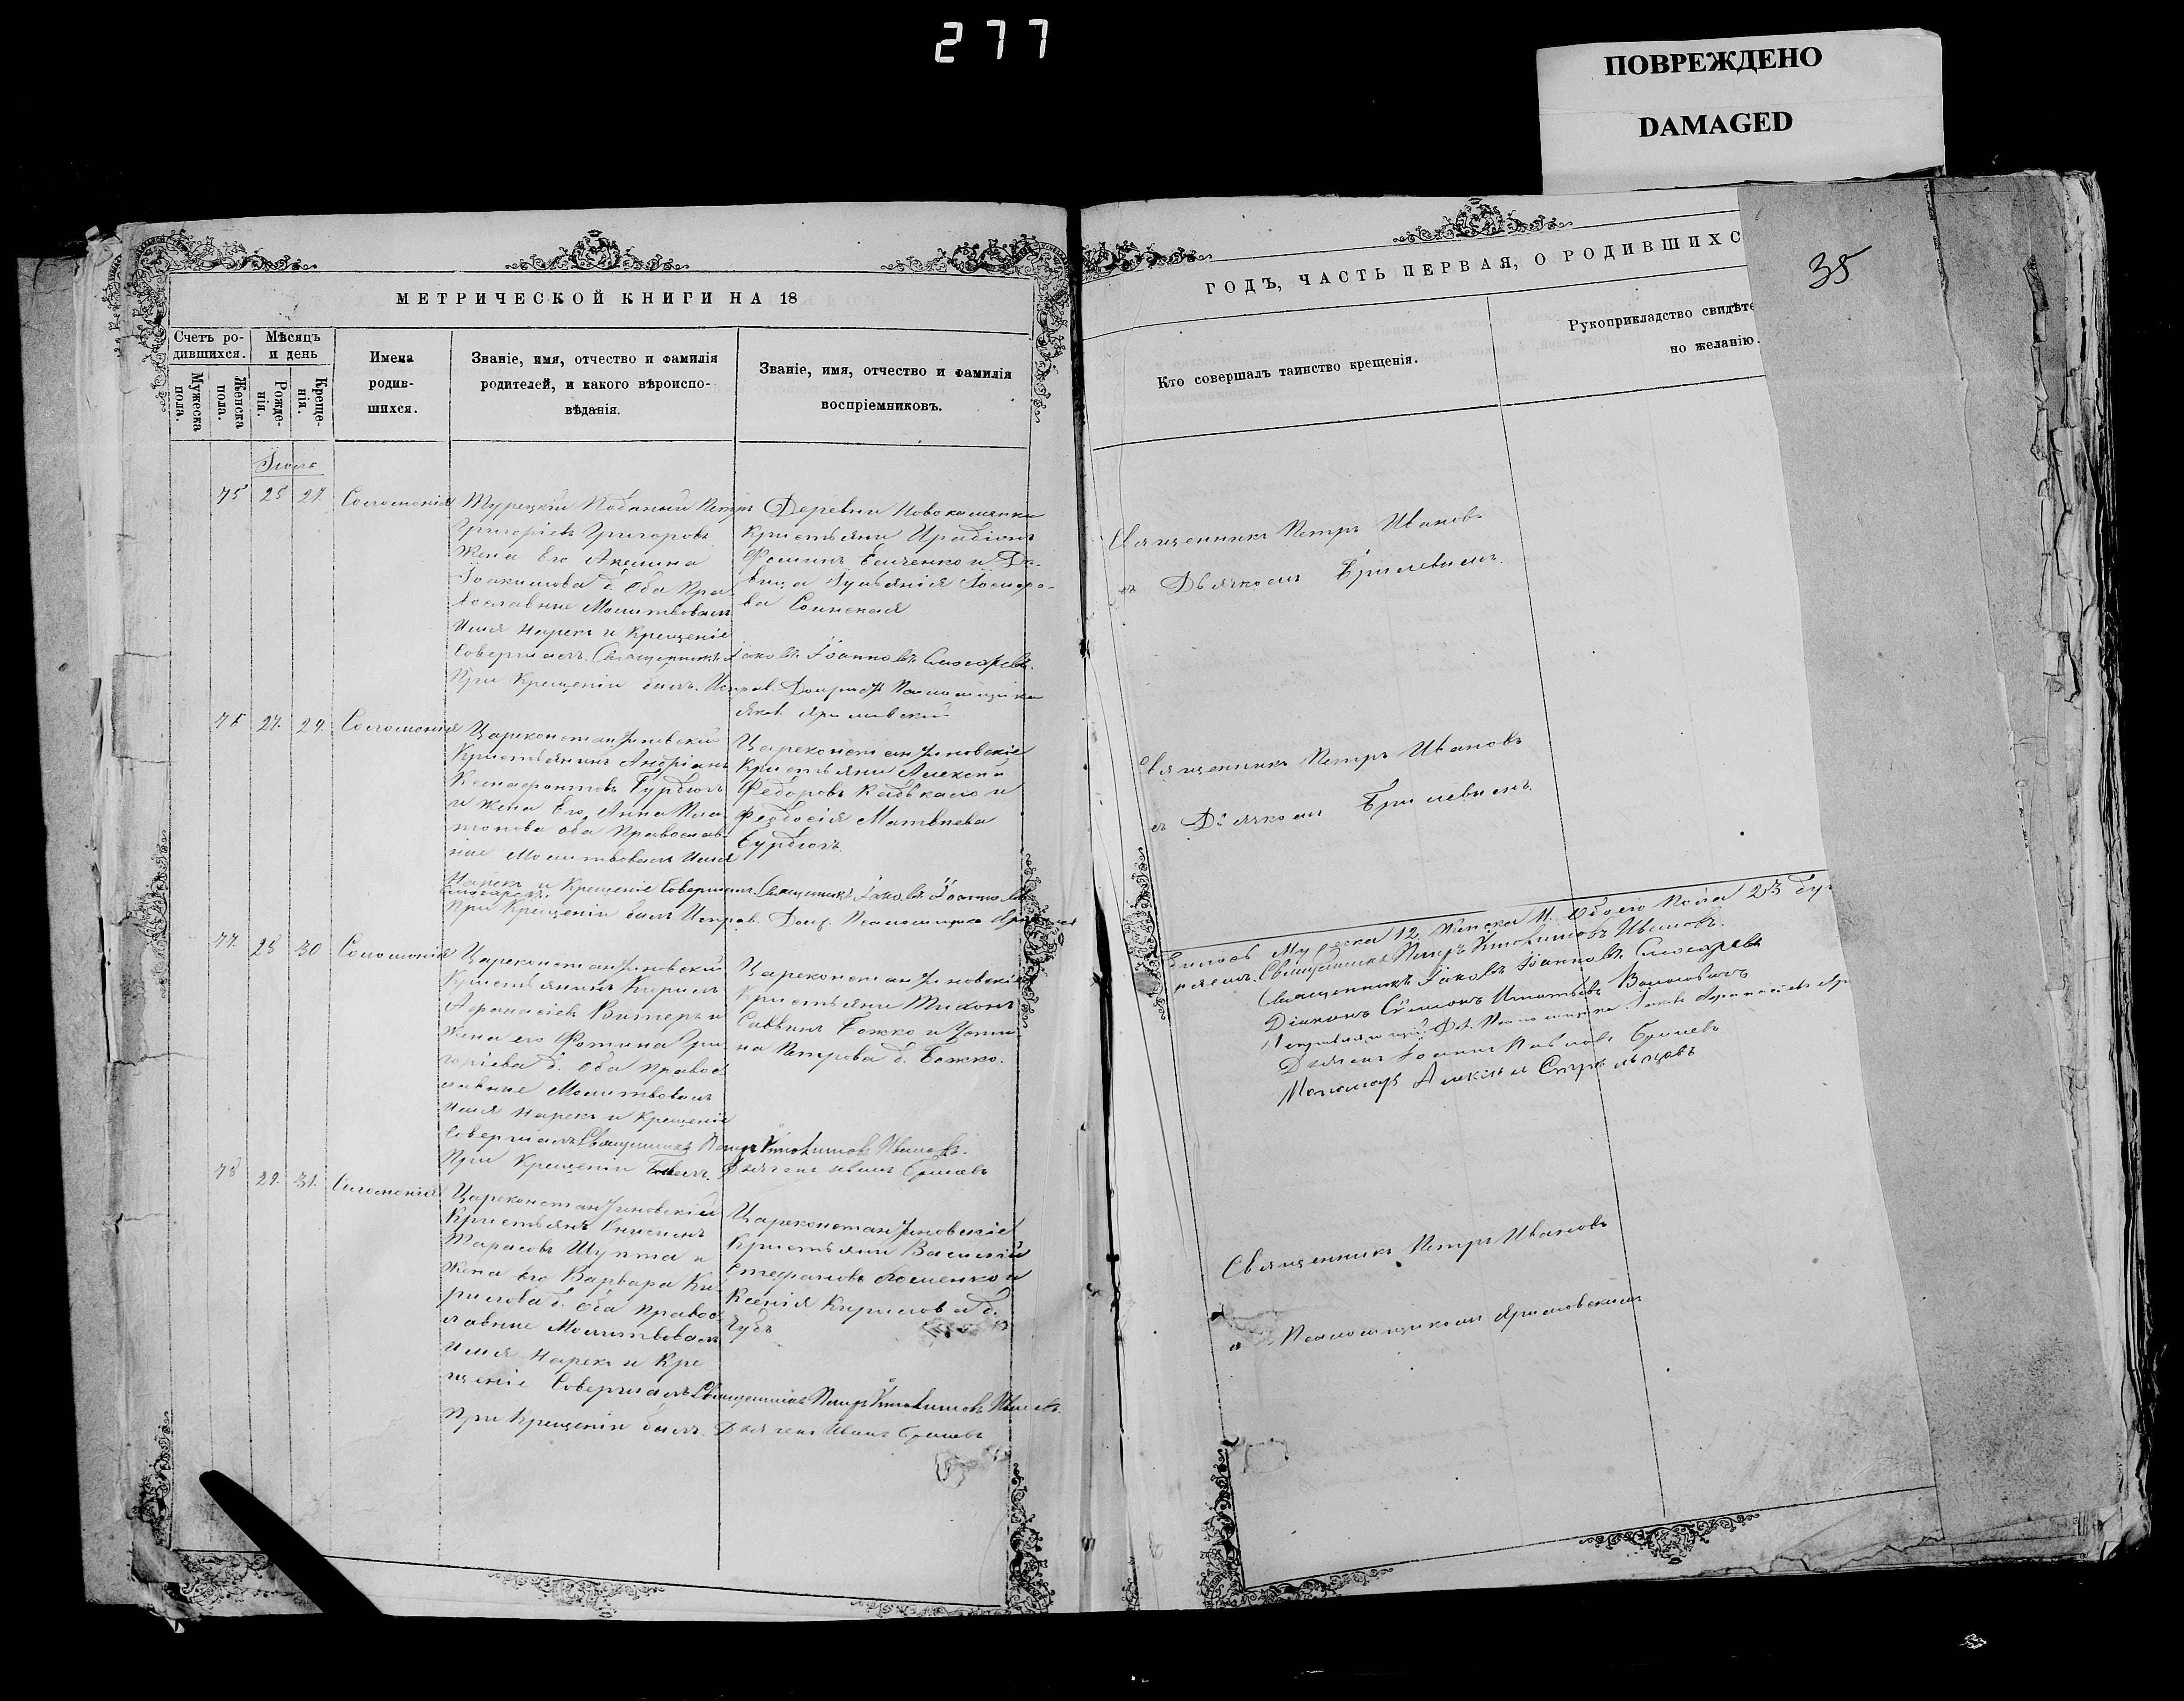 277
ПОВРЕЖДЕНО
DAMAGED
35
МЕТРИЧЕСКОЙ КНИГИ НА 18
Счетъ ро-
дившихся.
Мѣсяцъ
и день
Мужеска
пола.
Женска
пола.
Рожде-
нія.
Креще-
нія.
Имена
родив-
шихся.
Званіе, имя, отчество и фамилія
родителей, и какого вѣроиспо-
вѣданія.
Званіе, имя, отчество и фамилія
воспріемниковъ.
Іюль
75 25 27 Соломонія
Турецкій Поданый Петръ
Григоріевъ Григоровъ
Жена Его Акелина
Іоакимова б. Оба Пра
вославные Молитвовалъ
Имя нарекъ и Крещеніе
Совершалъ Священникъ Іаковъ Іоанновъ Слюсаревъ.
При Крещеніи былъ Исправ. Долж. Псаломщика
Яков. Яримовскій
Деревни Новокаменки
Крестьяни Иродіонъ
Фоминъ Евченко и Дѣ-
вица
ва
76 27. 29. Соломонія
Цареконстантиновскій
Крестьянинъ Андріанъ
Ксенофонтовъ Бурдюгъ
и жена Его Анна Пла
тонова оба Православ
ные Молитвовалъ Имя
Нарекъ и Крещеніе Совершалъ Священникъ Іаковъ Іоанновъ
Слюсаревъ
При Крещеніи былъ Исправ. Долж. Псаломщика
Цареконстантиновскіе
Крестьяни Алексей
Федоровъ и
Феодосія Матвѣева
Бурдюгъ.
77. 28 30 Соломонія
Цареконстантиновскій
Крестьянинъ Кирилъ
Афанасіевъ Витеръ и
Жена его Фотина Гри
горіева б. Оба Правос
лавные Молитвовалъ
Имя Нарекъ и Крещеніе
Совершалъ Священникъ Петръ Ивановъ.
При Крещеніи былъ Дьячекъ Иванъ
Цареконстантиновскіе
Крестьяни Тихонъ
Саввинъ Божко и Усти-
на Петрова б. Божко.
78 29. 31. Соломонія
Цареконстантиновскій
Крестьянъ Онисимъ
Тарасовъ Шупта и
Жена его Варвара Ки
рилова б. Оба Правос
лавные Молитвовалъ
Имя Нарекъ и Кре
щеніе Совершалъ Священникъ Петръ Ивановъ.
При Крещеніи былъ Дьячекъ Иванъ
Цареконстантиновскіе
Крестьяни Василій
Стефановъ и
Ксенія Кирилова б.
Чубъ
ГОДЪ, ЧАСТЬ ПЕРВАЯ, О РОДИВШИХС
Кто совершалъ таинство крещенія.
Рукоприкладство свидѣте
по желанію.
Священникъ Петръ Ивановъ
съ Дьячкомъ
Священникъ Петръ Ивановъ
съ Дьячкомъ
Мужеска 12 Женска 11. Обоего Пола 23
Священникъ Петръ Ивановъ.
Священникъ Іаковъ Іоанновъ Слюсаревъ
Діаконъ Игнатьевъ
Исправляющій Дол. Псаломщика Іаковъ
Дьячекъ Іоаннъ Павловъ
Пономарь Алексѣй
Священникъ Петръ Ивановъ
и Псаломщикомъ Яримовскимъ